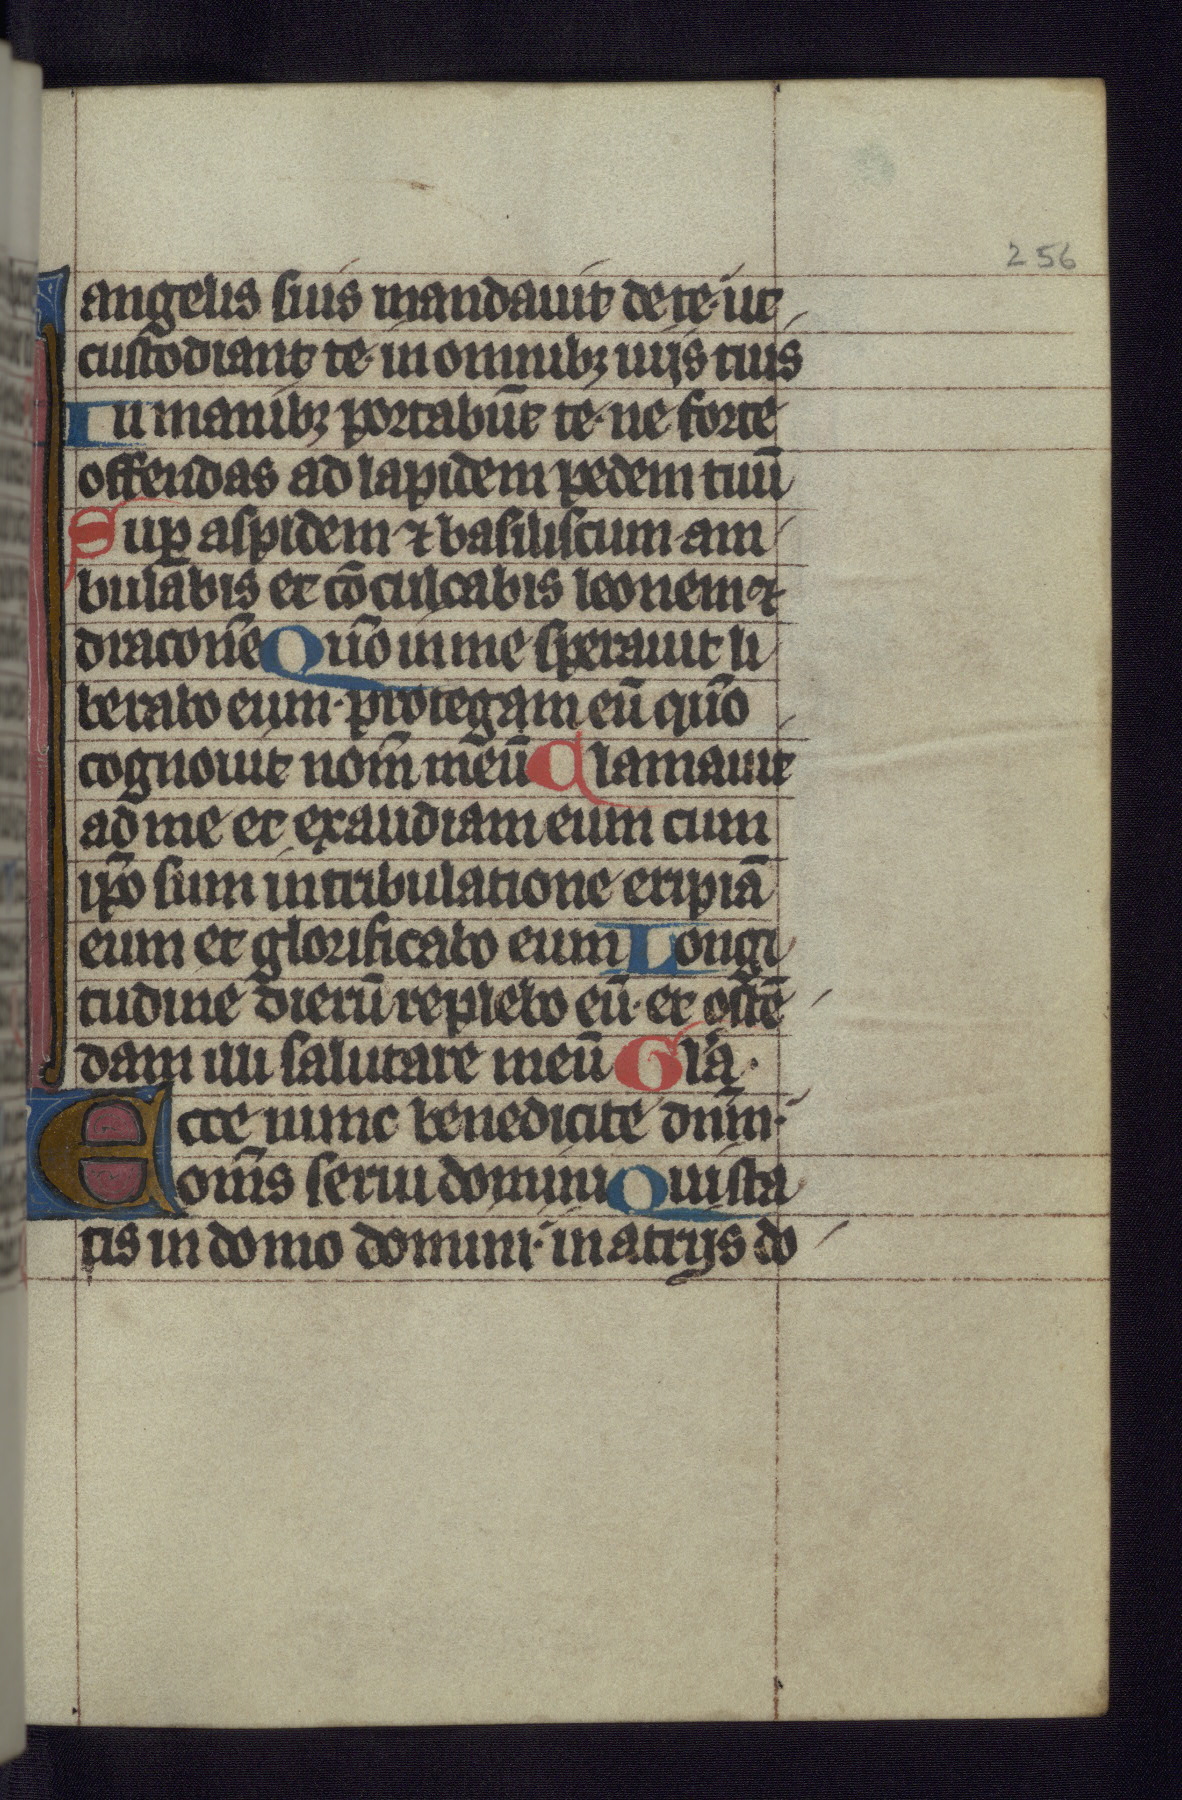 256
angelis suis mandauit de te· ut
custodiant te· in omnibꝫ uijs tuis
In manibꝫ portabūt te· ne forte
offendas ad lapidem pedem tuū
Suꝑ aspidem ⁊ basiliscum am
bulabis et cōculcabis leonem ⁊
draconē Qm̄o in me sperauit li
berabo eum· protegam eū qm̄o
cognouit nom̄ meū Clamauit
ad me et exaudiam eum cum
ip̄o sum in tribulatione eripiā
eum et glorificabo eum Longi
tudine dierū replebo eū· et ostē
dam illi salutare meū Gl̄a·
Ecce nunc benedicite dn̄m·
om̄s serui domini Qui sta
tis in domo domini· in atrijs do